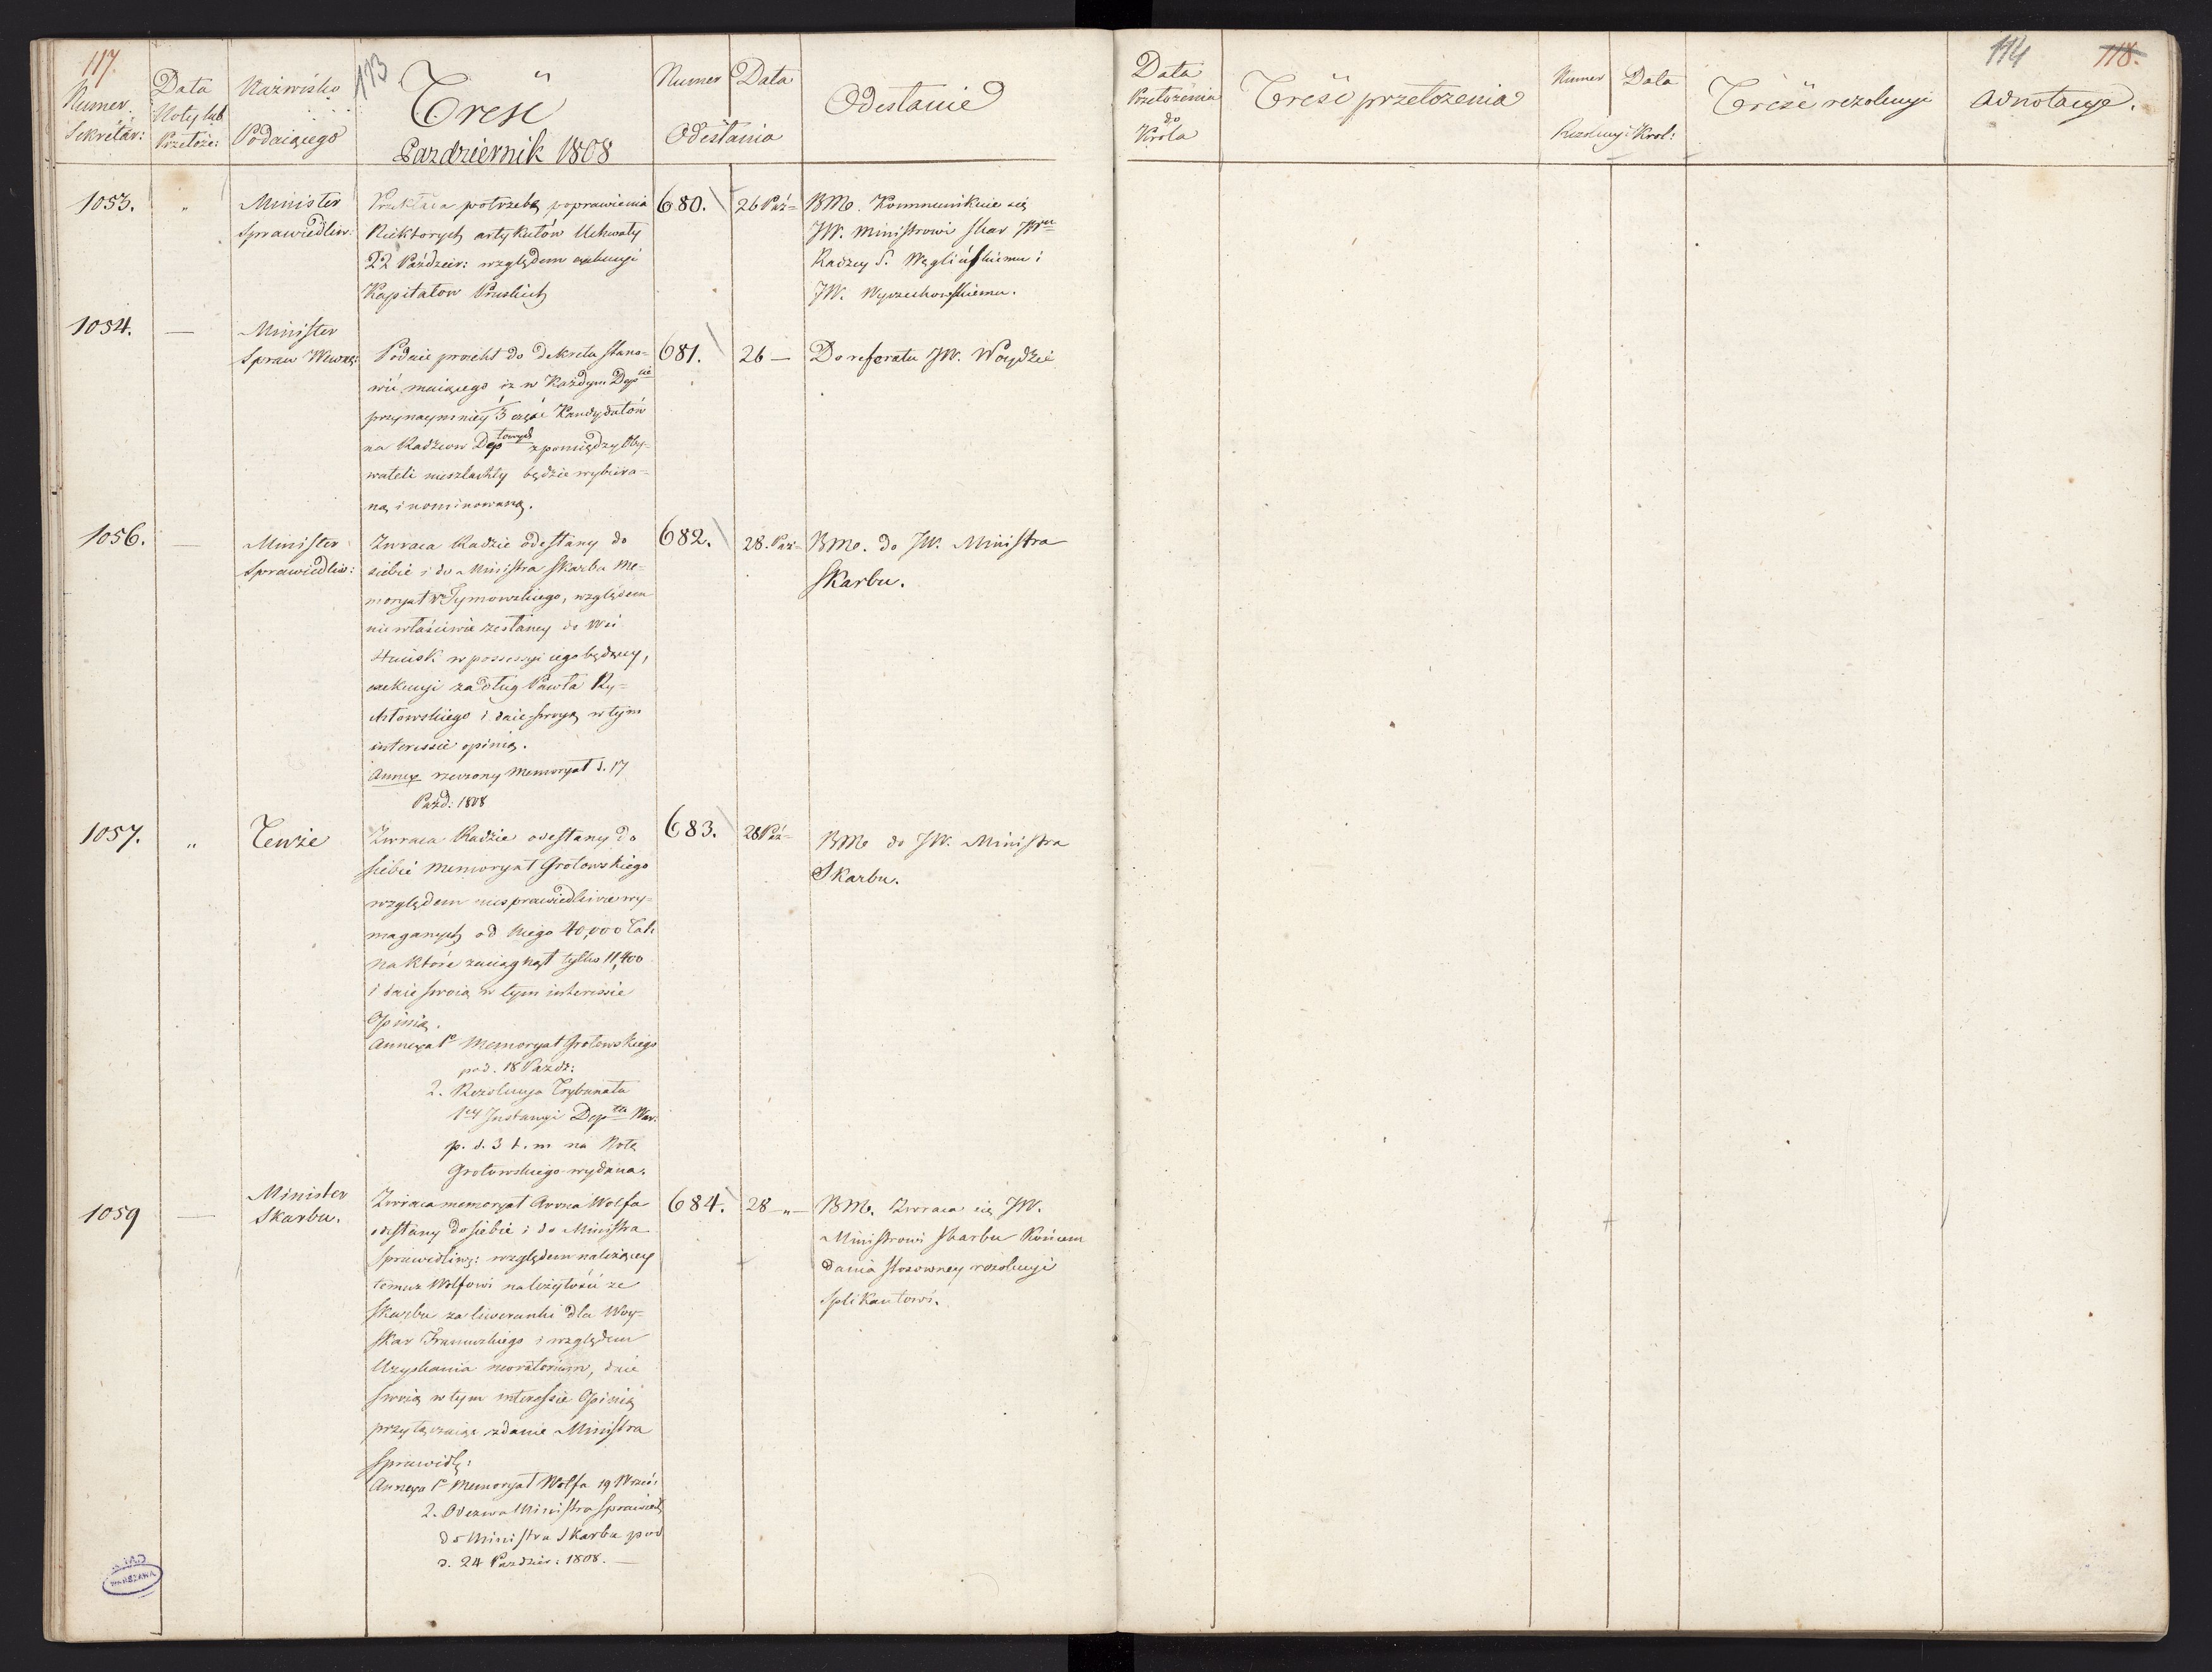 117.
113
Numer
Sekretar:
Data
Noty lub
Przełoże:
Nazwisko
Podaiącego
Treść
Pazdziernik 1808
Numer
Data
Odesłania
Odesłanie
1053.
"
Minister
Sprawiedliw:
Przekłada potrzebę poprawienia
Niektorych artykułów Uchwały
22 Paździer: względem exekucyi
Kapitałow Pruskich
680.
26 Paź=
BMo. Kommunikuie się
JW. Ministrowi Skar JW
Radzcy S. Węglińskiemu i
JW. Wyczechowskiemu.
1054.
—
Minister
Spraw Wewnę:
Podaie proiekt do Dekretu stano=
wić maiącego iż w Każdym Dep
przynaymniey 3 część Kandydatów
na Radźcow Dep towych z pomiędzy Oby=
wateli nieszlachty będzie wybiera=
ną i nominowaną.
681.
26 —
Do referatu JW. Woydzie
1056.
—
Minister
Sprawiedliw:
Zwraca Radzie odesłany do
siebie i do Ministra Skarbu Me=
moryał W Tymowskiego, względem
nie właściwie zesłaney do Wsi
Hucisk w possessyi iego będącey,
exekucyi za dług Pawła Ry=
chłowskiego i daie swoyą w tym
interessie opinią.
Annex rzeczony memoryał d. 17
Paźd: 1808
682.
28. Paź=
BMo. do JW. Ministra
Skarbu.
1057.
"
Tenże
Zwraca Radzie odesłany do
siebie Memoryał Grotowskiego
względem niesprawiedliwie wy=
maganych od Niego 40,000 Tal:
na które zaciągnął tylko 11,400
i daie swoią w tym interessie
Opinią.
Annexa 1 Memoryał Grotowskiego
pod. 18 Paźdz:
2. Rezolucya Trybunału
1ey Instancyi Dep tu War.
p. d. 3 t. m na Notę
Grotowskiego wydana.
683.
28 Paź=
BMo do JW. Ministra
Skarbu.
1059
—
Minister
Skarbu.
Zwraca memoryał Arona Wolfa
odesłany do siebie i do Ministra
Sprawiedliwo: względem należącey
temuż Wolfowi należytości ze
Skarbu za liwerunki dla Woy=
ska Francuzkiego i względem
Uzyskania moratorium, daie
swoią w tym interessie Opinią
przyłączaiąc zdanie Ministra
Sprawiedl:
Annexa 1 Memoryał Wolfa 19 Wrześ:
2. Odezwa Ministra Sprawied
do Ministra Skarbu pod
d. 24 Paździer: 1808. —
684.
28 —"—
BMo. Zwraca się JW.
Ministrowi Skarbu Końcem
dania stosowney rezolucyi
Splikantowi.
WARSZAWA
114
118.
Data
Przełożenia
do
Króla
Treść przełożenia
Numer
Data
Rezolucyi Król:
Treść rezolucyi
Adnotacye.